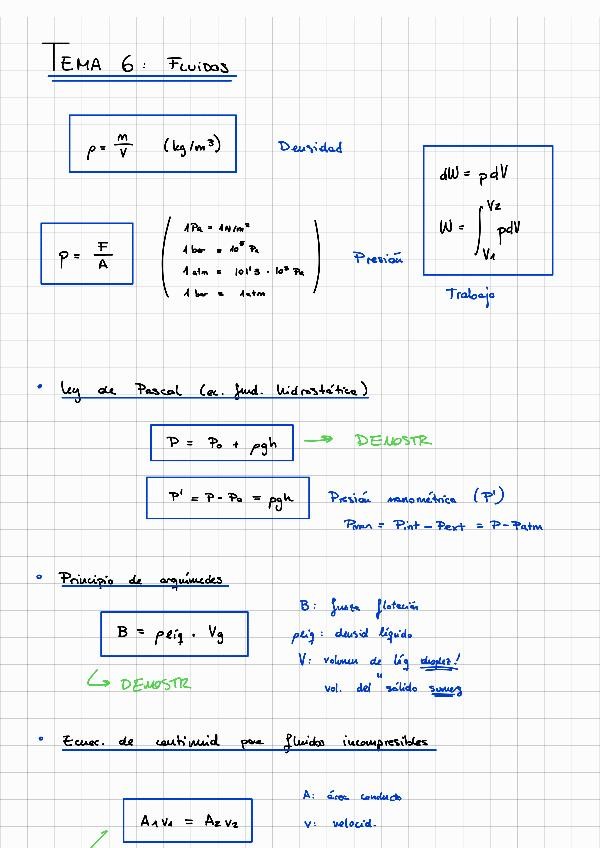 TEMA 6: FLUIDOS
ρ = m/V (kg/m³) Densidad
dW = pdV
W = ∫_V1^V2 pdV
Trabajo
p = F/A
1 Pa = 1 N/m²
1 bar = 10⁵ Pa
1 atm = 101'3 · 10³ Pa
1 bar ≈ 1 atm
Presión
• Ley de Pascal (ec. fund. hidrostática)
P = P₀ + ρgh → DEMOSTR
P' = P - P₀ = ρgh Presión manométrica (P')
Pman = Pint - Pext = P - Patm
• Principio de arquímedes
B = ρlíq · Vg
B: fuerza flotación
ρlíq: densid líquido
V: volumen de líq desplaz!
"
vol. del sólido sumerg
↳ DEMOSTR
• Ecuac. de continuid para fluidos incompresibles
A₁v₁ = A₂v₂
A: área conducto
v: velocid.